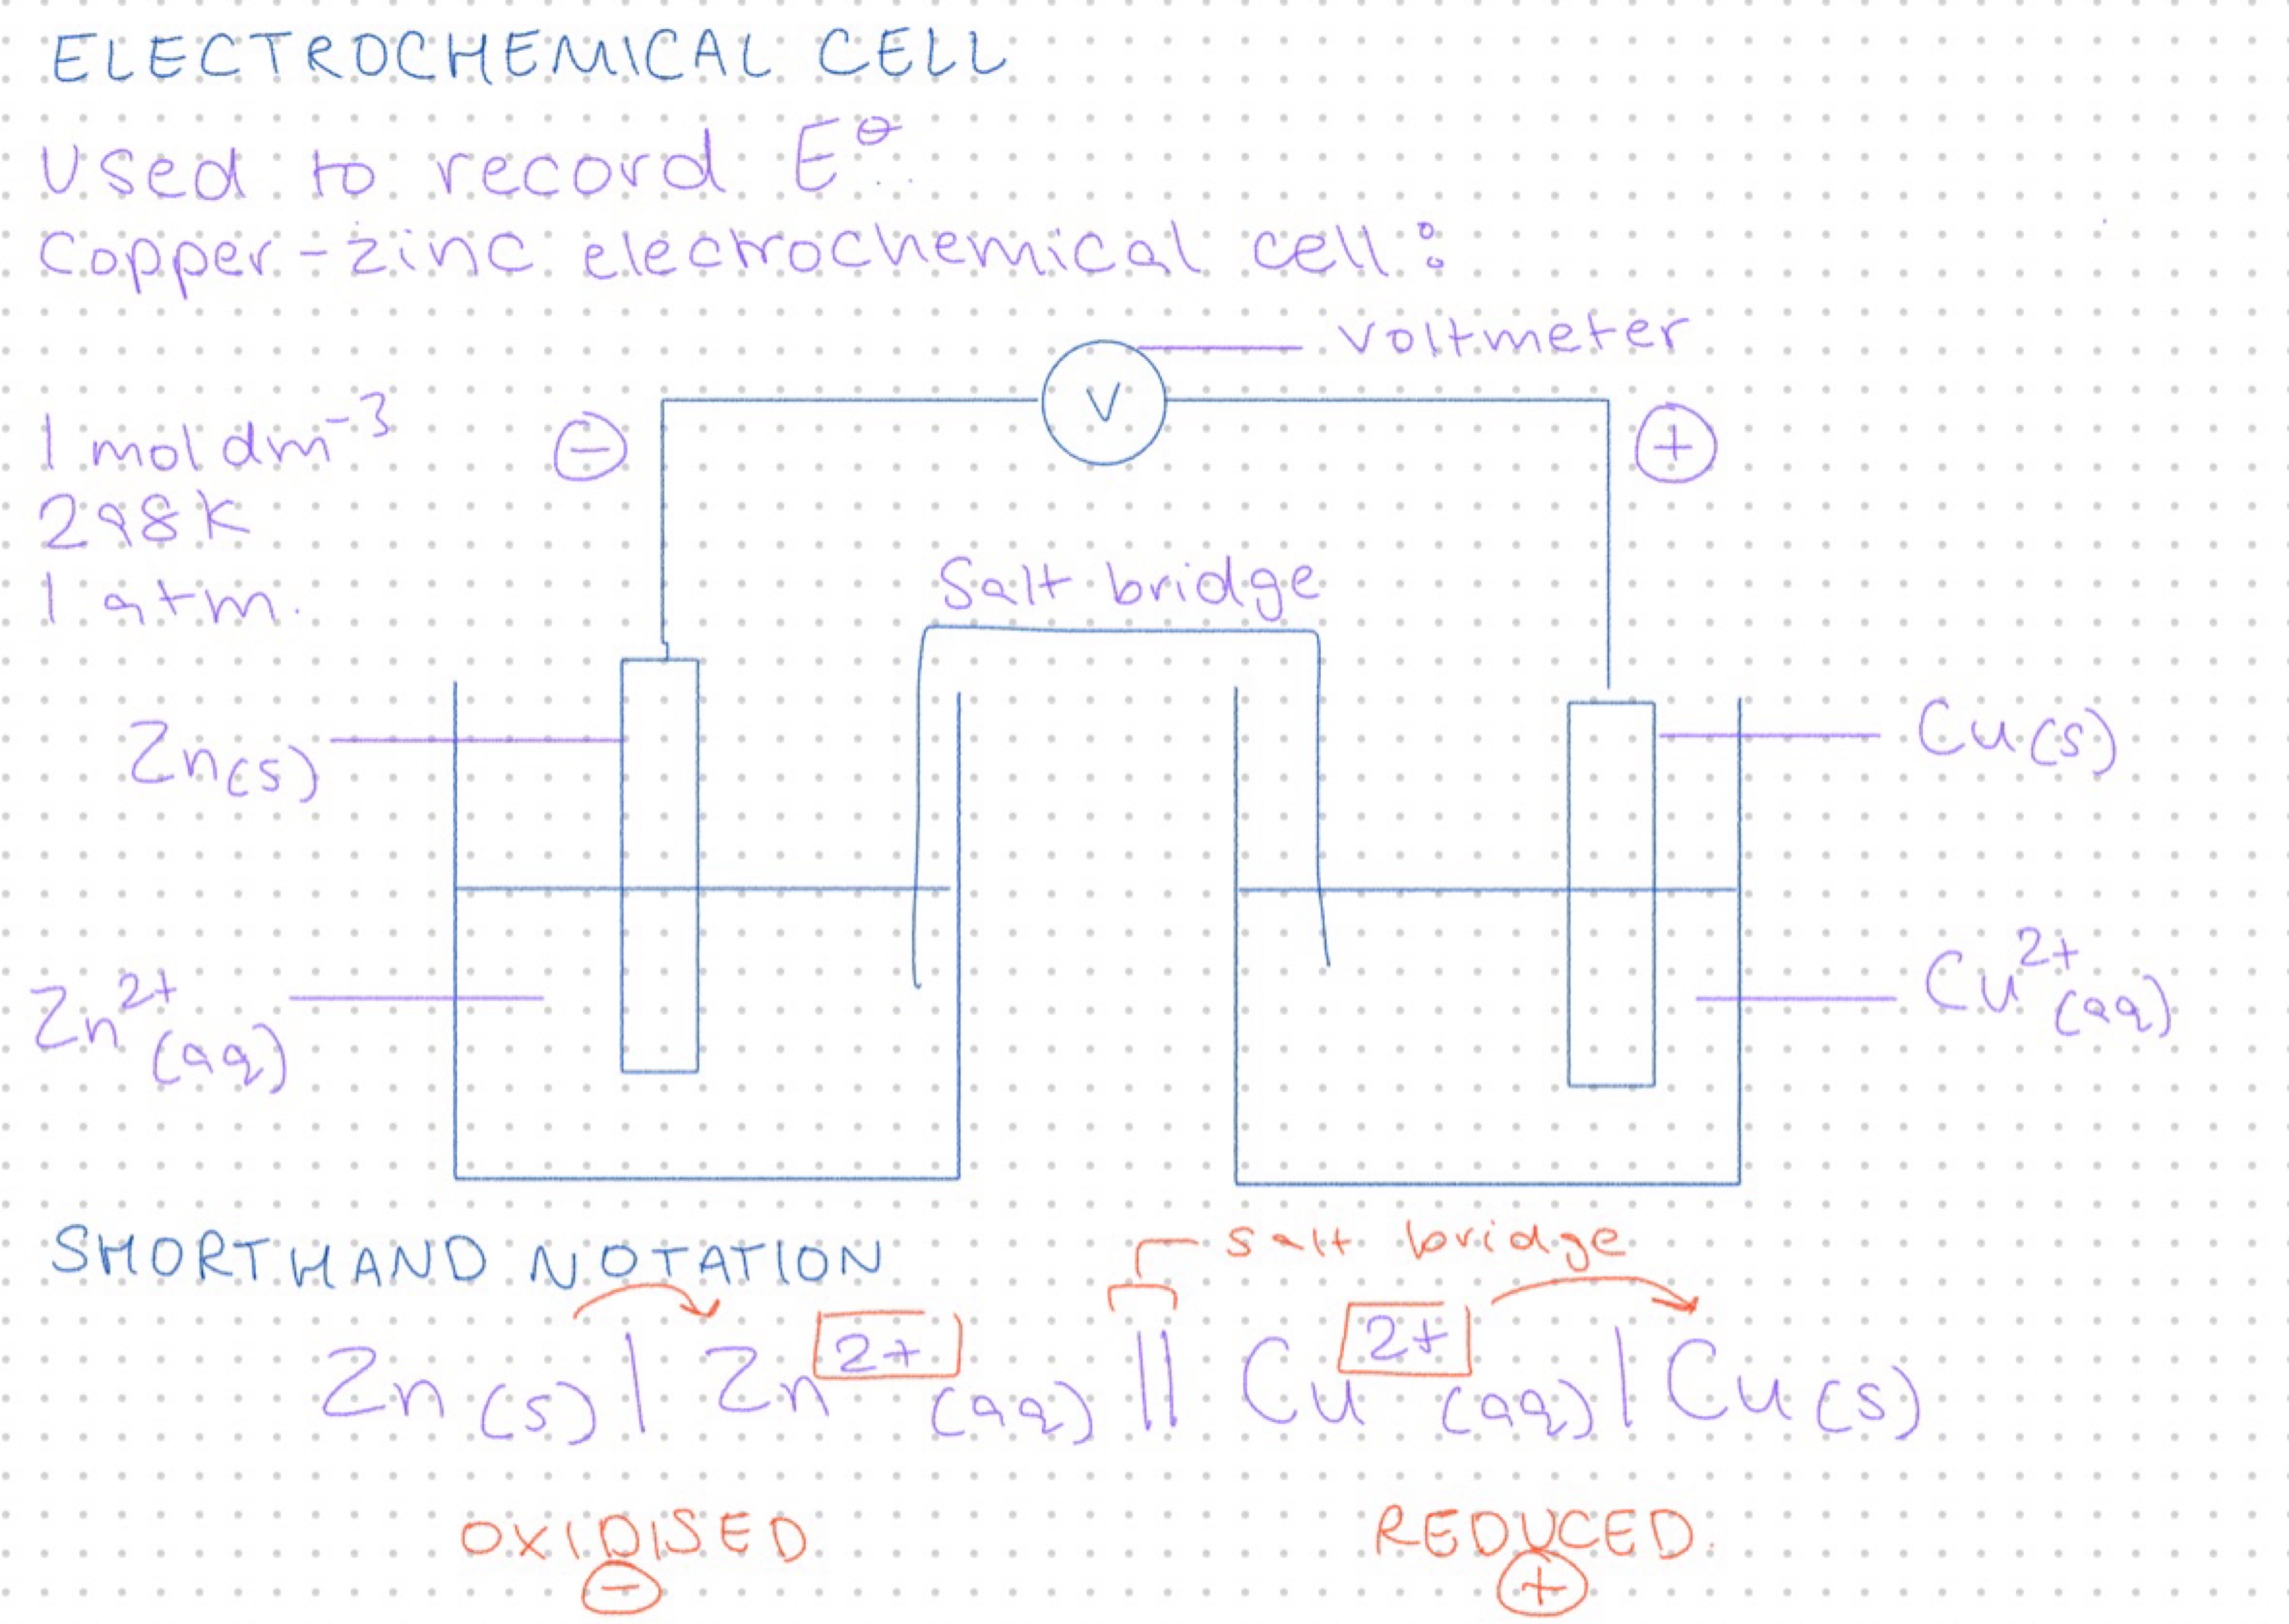 ELECTROCHEMICAL CELL
Used to record E⦵.
Copper-zinc electrochemical cell:
Voltmeter
V
1 mol dm⁻³
⊖
⊕
298K
1 atm.
Salt bridge
Zn(s)
Cu(s)
Zn²⁺(aq)
Cu²⁺(aq)
SHORTHAND NOTATION
salt bridge
Zn(s) | Zn²⁺(aq) || Cu²⁺(aq) | Cu(s)
OXIDISED
REDUCED.
⊖
⊕